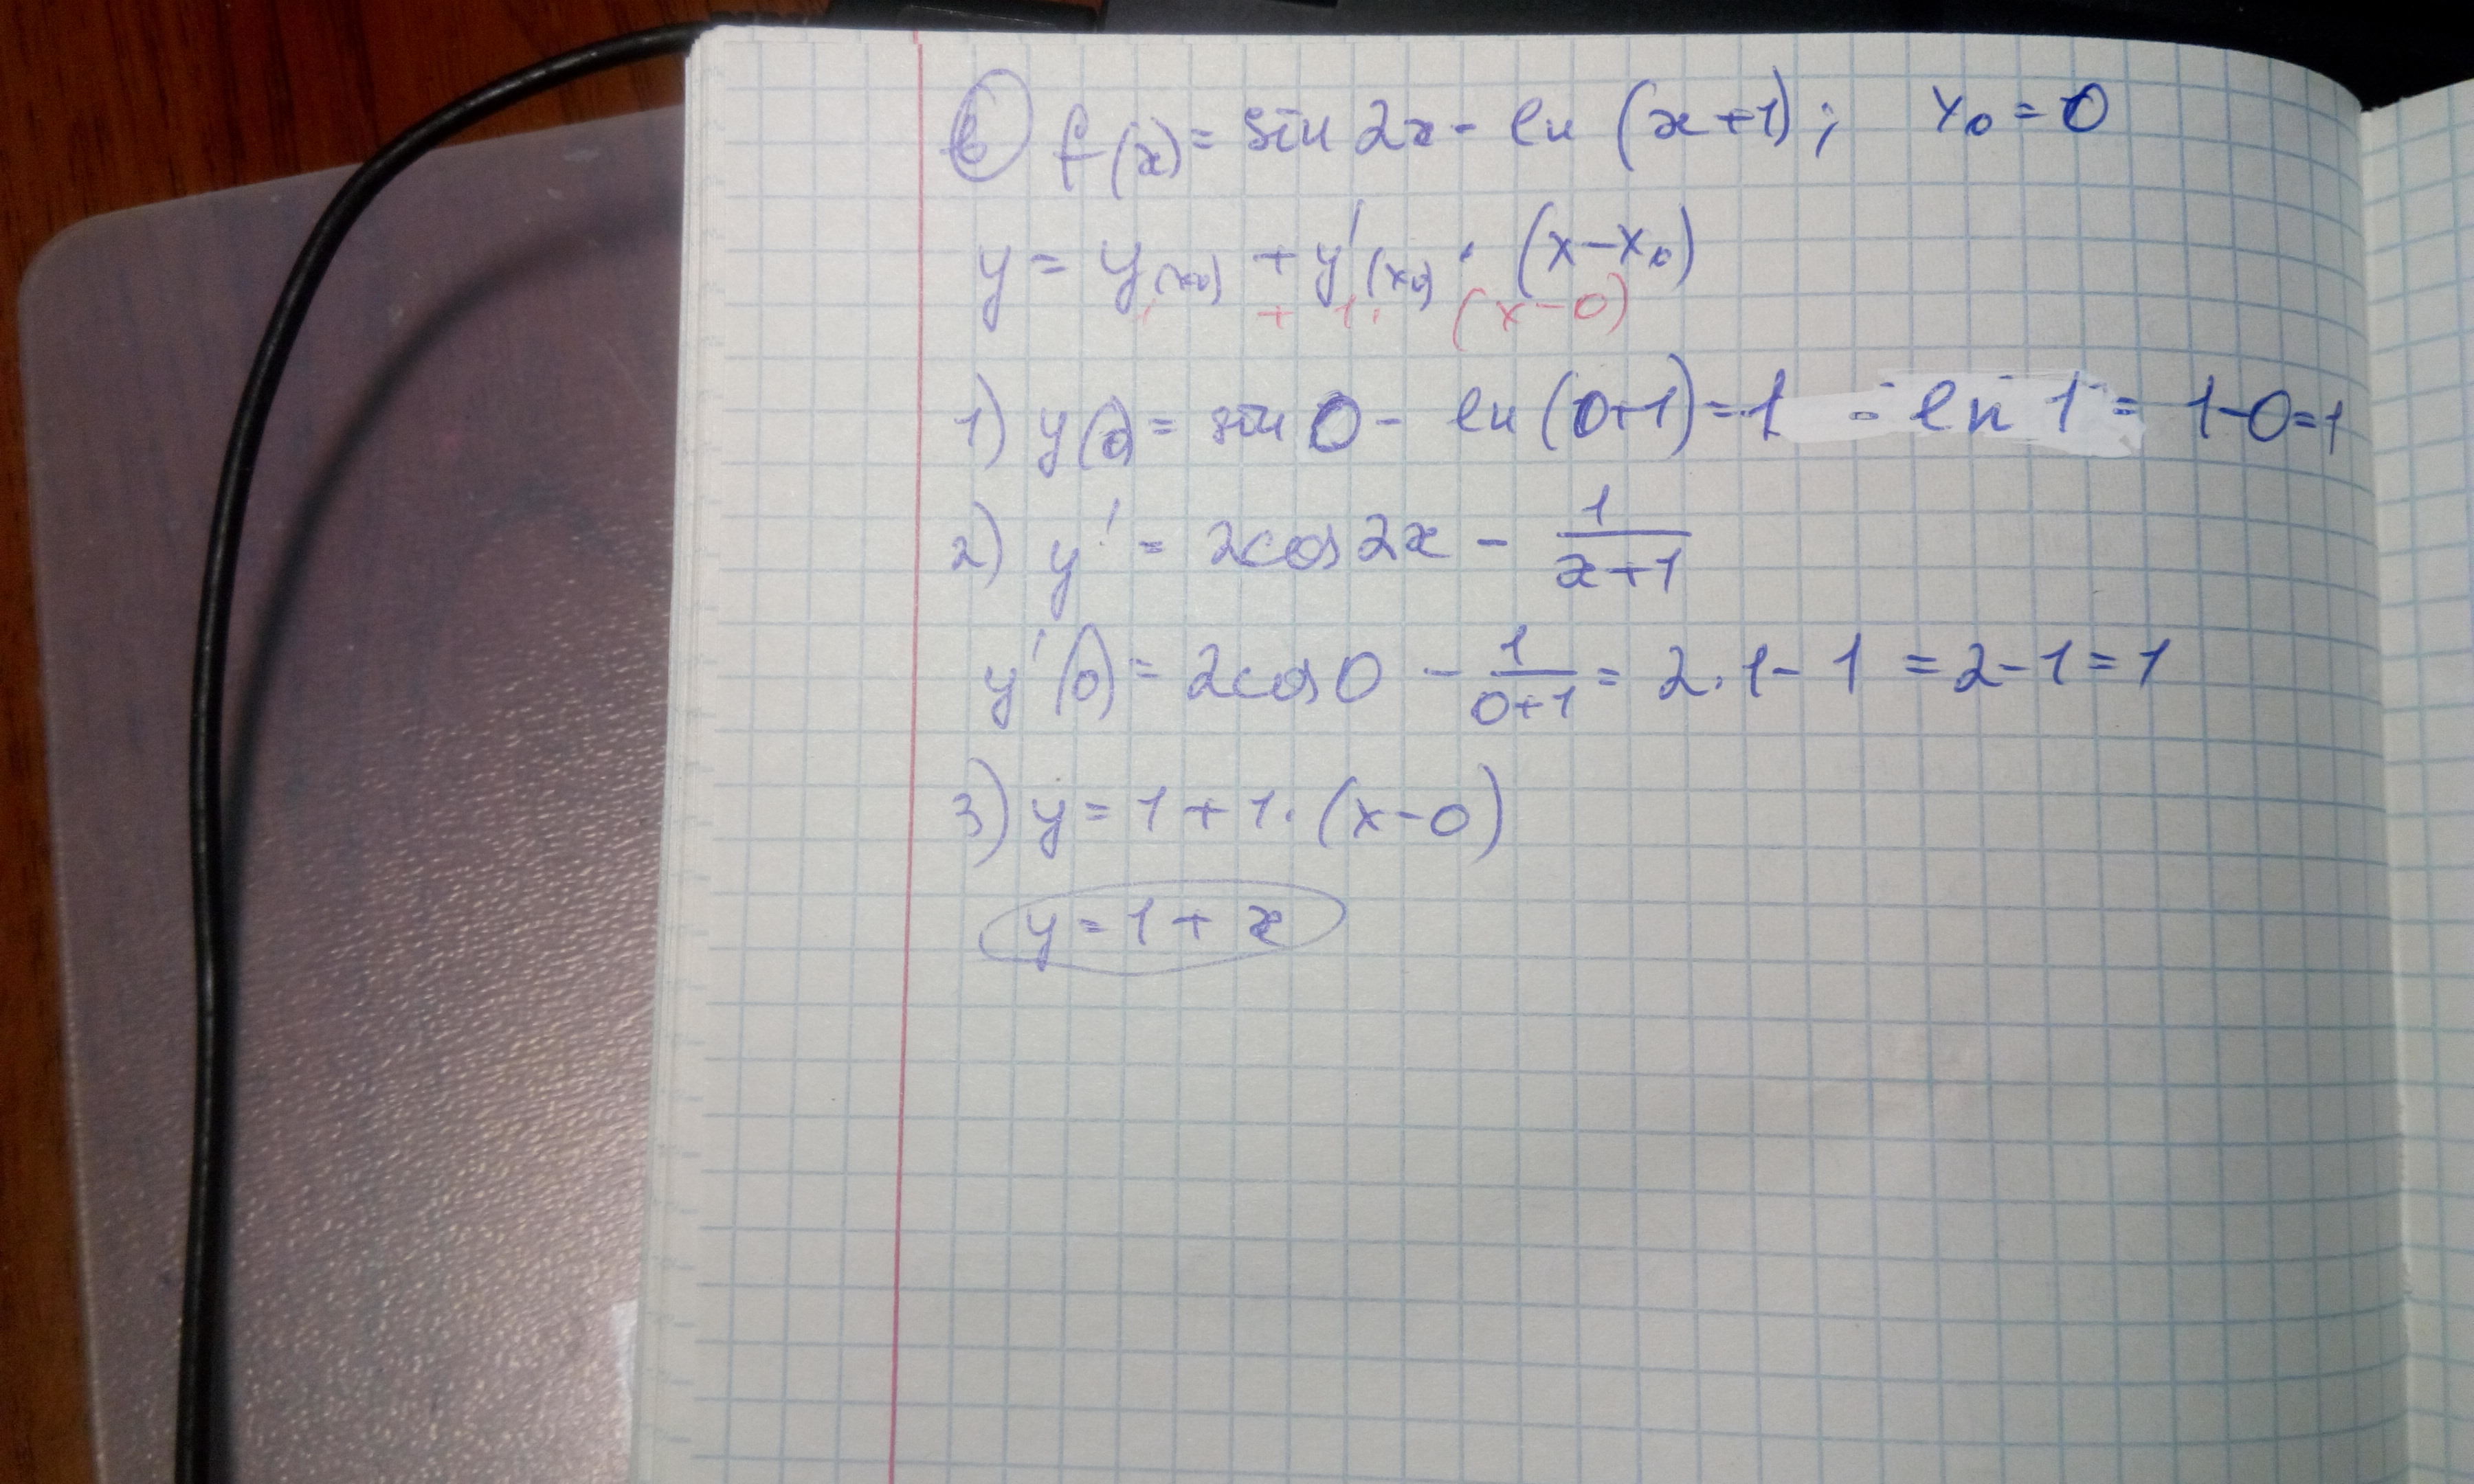 б) f(x) = sin 2x - ln (x+1); x₀ = 0
y = y(x₀) + y'(x₀) · (x-x₀)
+ 1 · (x-0)
1) y(0) = sin 0 - ln (0+1) = 1 - ln 1 = 1-0=1
2) y' = 2cos 2x - 1/(x+1)
y'(0) = 2cos 0 - 1/(0+1) = 2·1-1 = 2-1=1
3) y = 1+1·(x-0)
y = 1+x